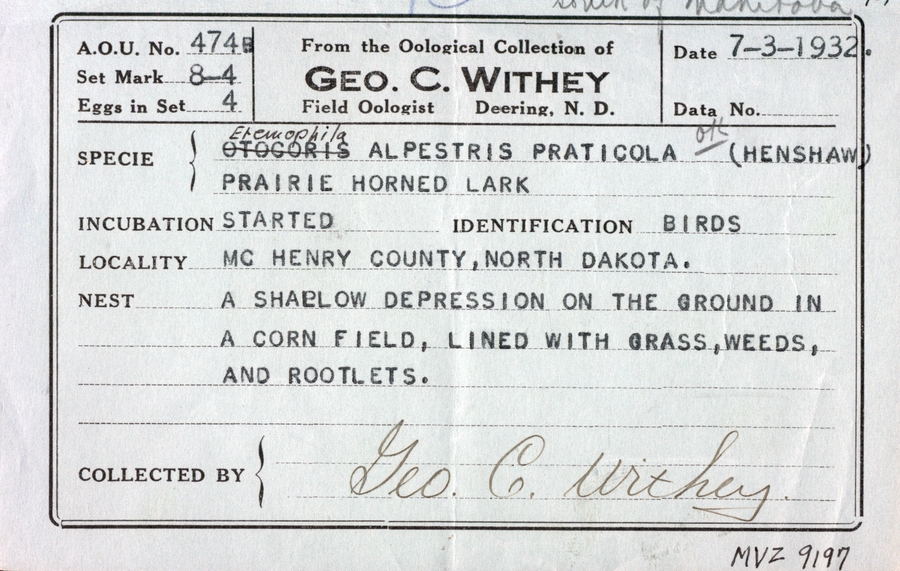 south of Manitoba
A.O.U. No. 474B
Set Mark 8-4
Eggs in Set 4
From the Oological Collection of
GEO. C. WITHEY
Field Oologist Deering, N. D.
Date 7-3-1932.
Data No.
Eremophila
OK
SPECIE OTOCORIS ALPESTRIS PRATICOLA (HENSHAW)
PRAIRIE HORNED LARK
INCUBATION STARTED IDENTIFICATION BIRDS
LOCALITY MC HENRY COUNTY,NORTH DAKOTA.
NEST A SHALLOW DEPRESSION ON THE GROUND IN
A CORN FIELD, LINED WITH GRASS,WEEDS,
AND ROOTLETS.
COLLECTED BY Geo. C. Withey.
MVZ 9197